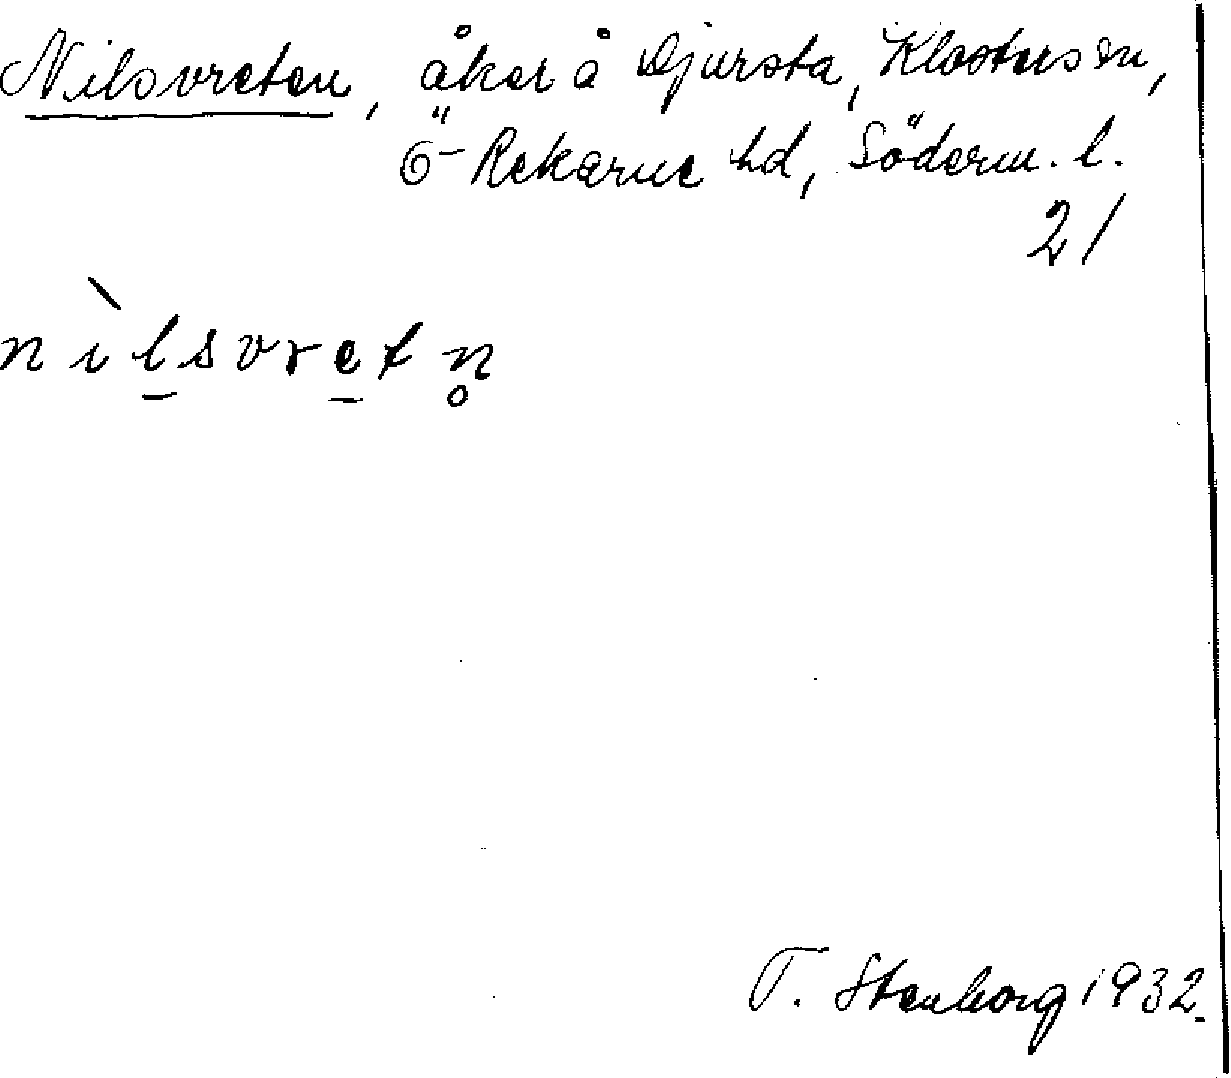 Nilsvreten, åker å Djursta, Klosters sn,
Ö-Rekarne hd, Söderm. l.
21
nìl̠svre̠tn̥
T. Stenborg 1932.